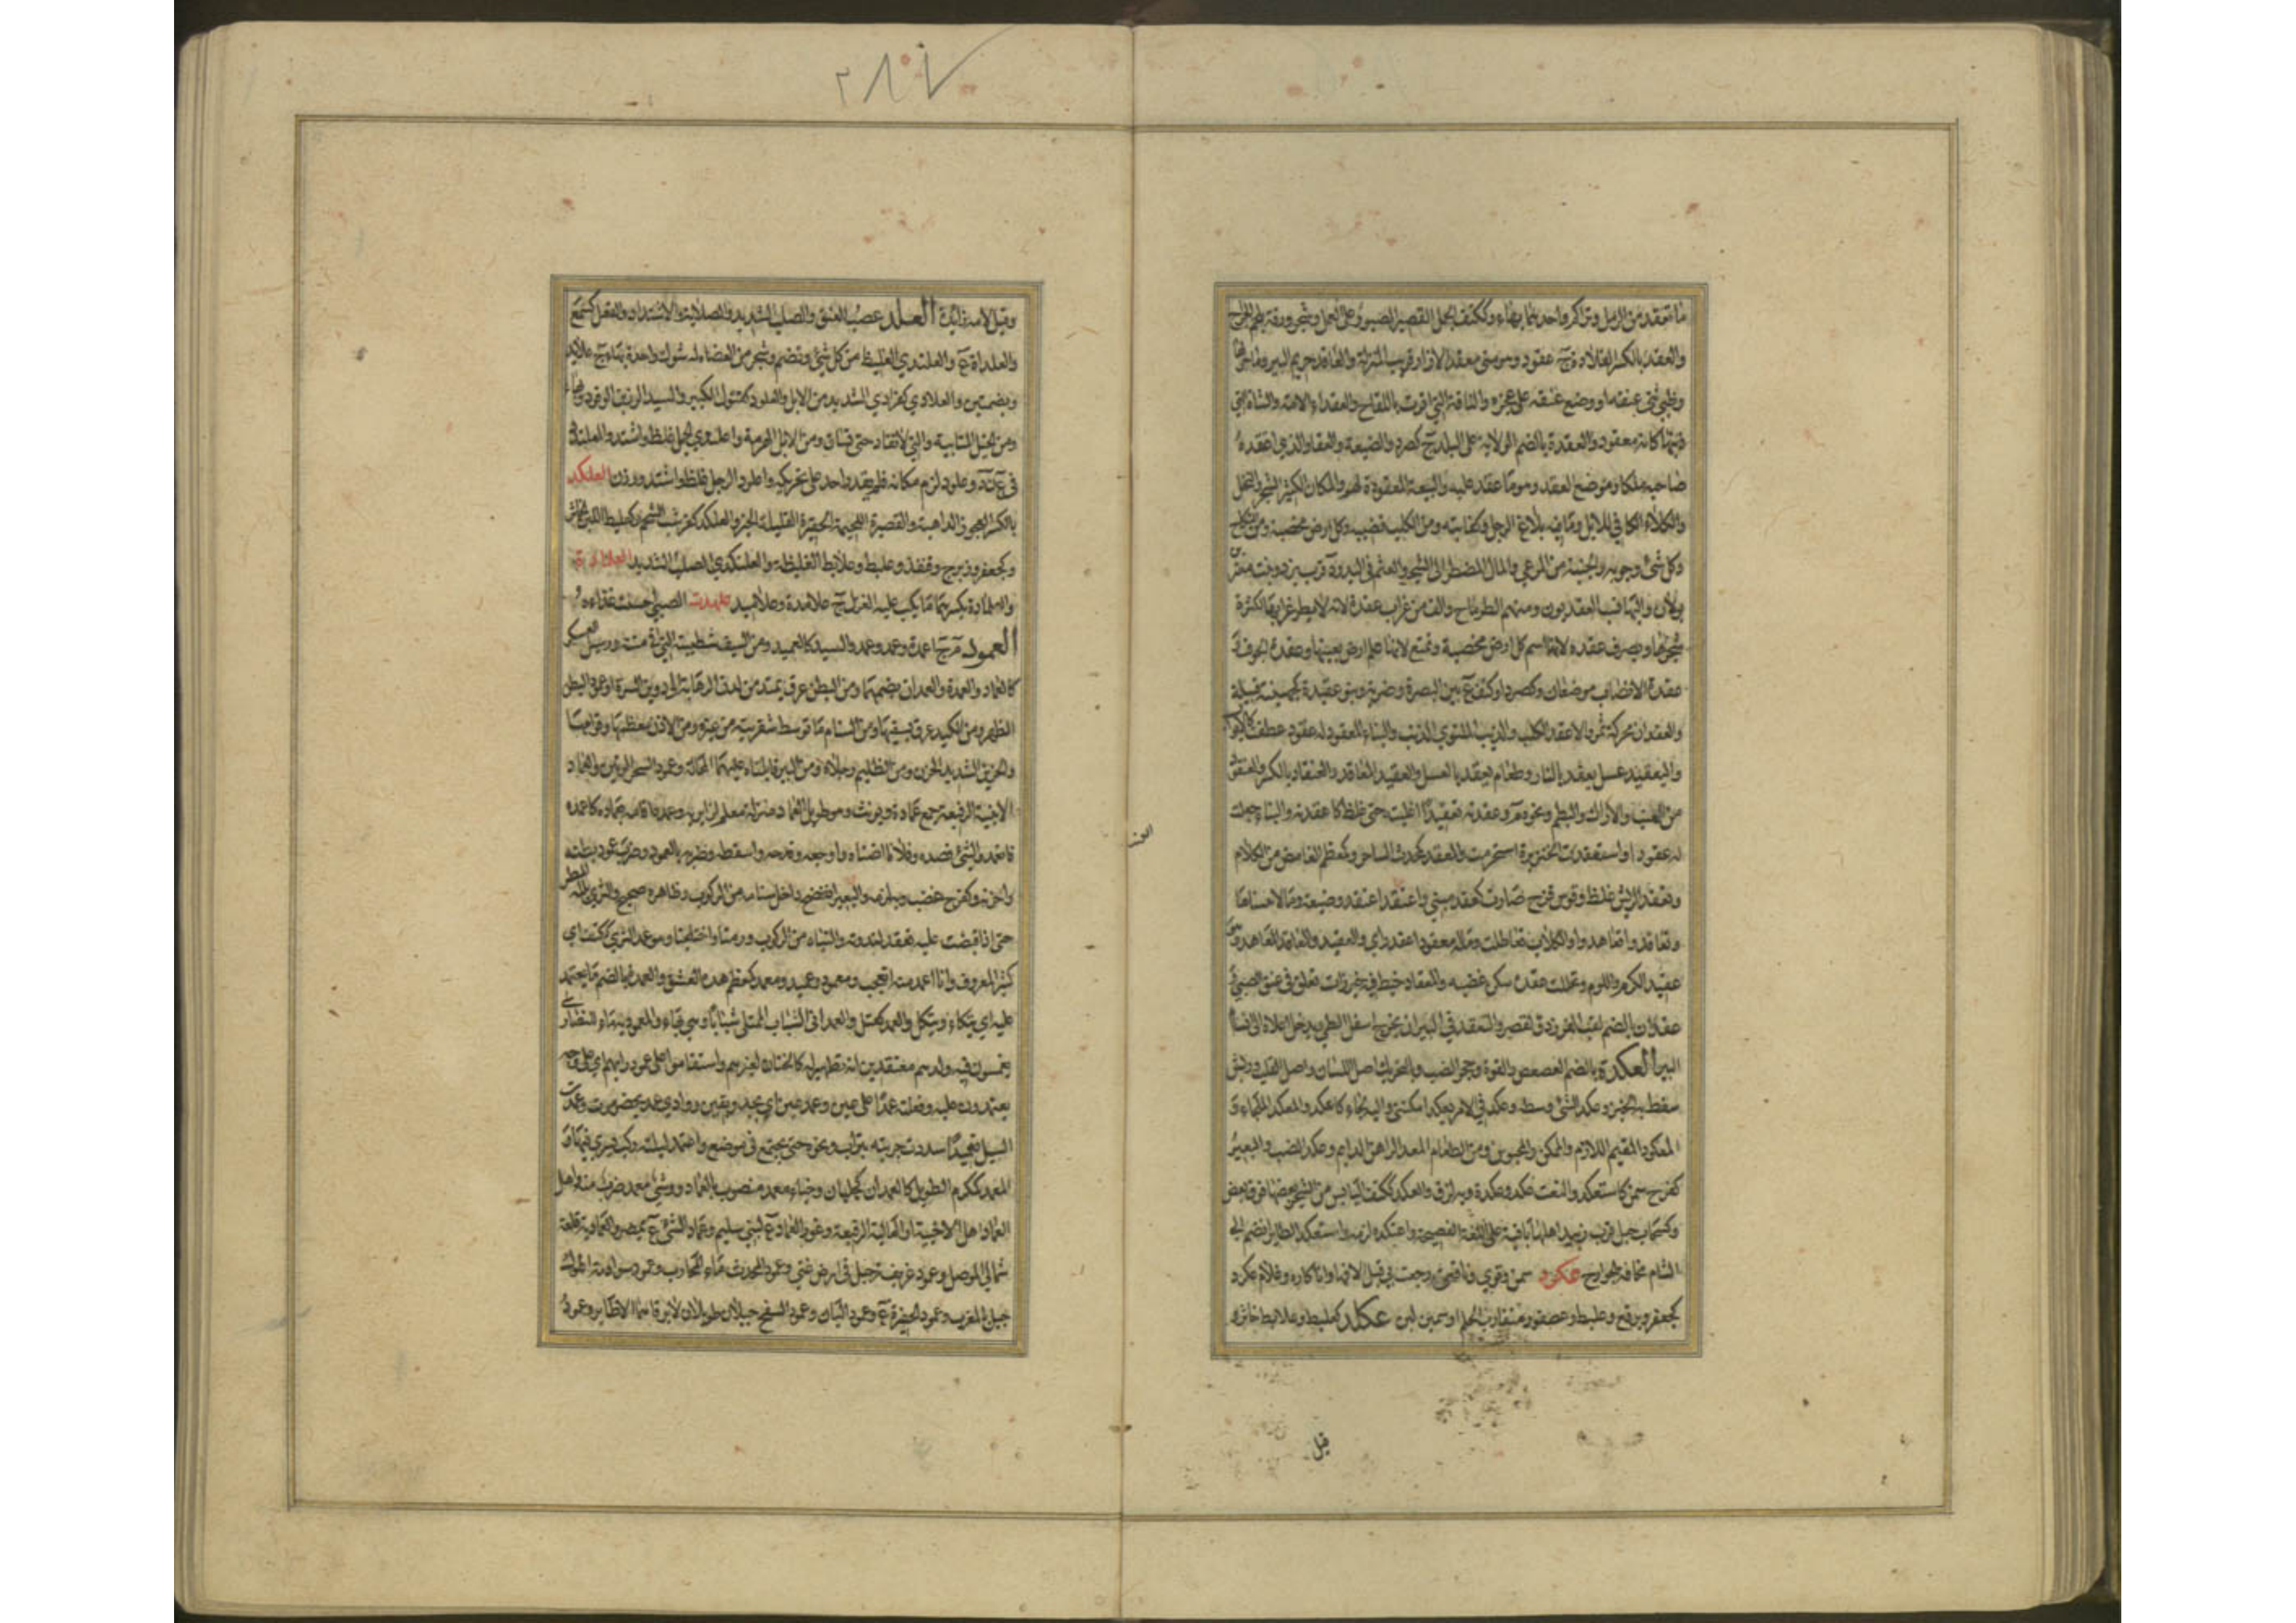 ٢٨٧
ما تعقد من الرمل وتراكم واحدتهما بهاء وككتف الجمل القصير الصبور على العمل وشجر ورقه يلحم الجراح
والعقد بالكسر القلادة ج عقود وهو مني معقد الازار اي قريب المنزلة والعاقد حريم البير وما حولها
وظبي ثنى عنقه او وضع عنقه على عجزه والناقة التي اقرت باللقاح والعقداء الامة والشاة التي
ذنبها كانه معقود والعقدة بالضم الولاية على البلد ج كصرد والضيعة والعقار الذي اعتقده
صاحبه ملكا وموضع العقد وهو ما عقد عليه والبيعة المعقودة لهم والمكان الكثير الشجر والنخل
والكلاء الكافي للابل وما فيه بلاغ الرجل وكفايته ومن الكلب قضيبه وكل ارض مخصبة
وكل شئ وجوبه والجنبة من المرعى والمال المضطر الى الشجر والعثم في اليد و ة قرب يزد وبنت معتز
بولان واليها نسب العقديون ومنهم الطرماح والف من غراب عقدة لانه لا يطير غرابها لكثرة
شجرها ويصرف عقدة لانها اسم كل ارض مخصبة وتمنع لانها علم ارض بعينها وعقدة الجوف و
عقدة الانصاب موضعان وكصرد او كتف ع بين البصرة وضرية وبنو عقيدة كجهينة قبيلة
والعقدان محركة تمر والاعقد الكلب والذيب الملتوي الذنب والبناء المعقود له عقود عطفت كالابواب
واليعقيد عسل يعقد بالنار وطعام يعقد بالعسل والعقيد المعاقد والعنقاد بالكسر والعنقود
من العنب والاراك والبطم ونحوه م وعقدته تعقيدا اغليت حتى غلظ كاعقدته والبناء جعلت
له عقودا واستعقدت الخنزيرة استحرمت والمعقد كمحدث الساحر وكمعظم الغامض من الكلام
وتعقد الدبس غلظ وقوس قزح صارت كعقد مبني واعتقد اعتقد وضيعة ومالا اقتناهما
وتعاقدوا تعاهدوا والكلاب تعاظلت وماله معقود اي عقد راي والعقيد والمعاقد المعاهد وهو
عقيد الكرم واللوم وتحللت عقده سكن غضبه والمعقاد خيط فيه خرزات تعلق في عنق الصبي
عقدان بالضم لقب الفرزدق لقصره والتعقد في البير ان يخرج اسفل الطي ويدخل اعلاه الى اتساع
البير العكدة بالضم العصعص والقوة وجحر الضب وبالتحريك اصل اللسان واصل القلب
وعكد الشئ وسطه وعكد في الامر يعكد امكنني واليه لجاء كاعكد والمعكد الملجاء و
المعكود المقيم اللازم والممكن والمحبوس ومن الطعام المعد الراهن الدايم وعكد الضب والبعير
كفرح سمن كاستعكد والنعت عكد وعكدة وبه لزق والعكد ككتف اليابس من الشجر بعضها فوق بعض
وكسحاب جبل قرب زبيد اهلها باقية على اللغة الفصيحة واعتكده لزمه واستعكد الطاير انضم الى
الشام مخافة الجوارح عكرد سمن وقوي وناقتي رجعت بي قبل الافها وانا كاره وغلام عكرد
كجعفر وبرقع وعلبط وعصفور متقارب الحلم او سمين لبن عكلد كعلبط وعلابط خاثر
قيل
وقيل لامه زايدة العلد عصب العنق والصلب الشديد والصلابة والاشتداد والفعل كسمع
والعلداة ع والعلندى الغليظ من كل شئ وتضم وشجر من العضاه له شوك واحدة بهاء ج علاند
وبضمتين والعلادي كفرادى الشديد من الابل والعلود كقثول الكبير والسيد الرزين الوقور وبهاء
ومن الخيل المتابية والتي لا تنقاد حتى تساق ومن الابل الهرمة واعلندى الجمل غلظ واشتد والعلندد
وعلود لزم مكانه فلم يقدر احد على تحريكه واعلود الرجل غلظ واشتد ورزن العلكد
بالكسر العجوز الداهية والقصيرة اللحيمة الحقيرة القليلة الخير والعلكد كقرشب الشحم وكعلبط اللبن الخاثر
وكجعفر وزبرج وقنفذ وعلبط وعلابط الغليظة والعلنكد الصلب الشديد العلمادة
والعلمادة بكسرهما ما يكب عليه الغزل ج علامدة وعلاميد علهدت الصبي احسنت غذاءه
العمود م ج اعمدة وعمد وعمد والسيد كالعميد ومن السيف شطيبته التي في متنه ورئيس العسكر
كالعماد والعمدة والعمدان بضمهما ومن البطن عرق يمتد من لدن الرهابة الى دوين السرة او عمود البطن
الظهر ومن الكبد عرق يسقيها ومن السنام ما توسط شفرتيه من عيره ومن الاذن معظمها وقوامها
والحزين الشديد الحزن ومن الظليم رجلاه ومن البير قايمتاه عليهما المحالة وعمود السحر الوتين والعماد
الابنية الرفيعة جمع عمادة ويونث وهو طويل العماد منزله معلم لزايريه وعمده اقامه بعماد كاعمده
فانعمد والشئ قصده وفلانا اضناه واوجعه وفدحه واسقطه وضربه بالعمود وضرب عمود بطنه
واحزنه وكفرح غضب وبه لزمه والبعير انفضخ داخل سنامه من الركوب وظاهره صحيح والثرى بلله المطر
حتى اذا قبضت عليه تعقد لندوته واليتاه من الركوب ورمتا واختلجتا وهو عمد الثرى ككتف اي
كثير المعروف وانا اعمد منه اتعجب ومعمود وعميد ومعمد كمعظم هده العشق والعمدة بالضم ما يعتمد
عليه اي يتكاء ويتكل والعمد كعتل والعمداني الشباب الممتلئ شبابا وهي بهاء والمعمودية ماء للنصارى
يغمسون فيه ولدهم معتقدين انه تطهير له كالختان لغيرهم واستقاموا على عمود رايهم اي على وجه
يعتمدون عليه وفعلت عمدا على عين وعمد عين اي بجد ويقين ووادي عمد بحضرموت وعمدت
السيل تعميدا سددت جريته بتراب ونحوه حتى يجتمع في موضع واعتمد ليلته ركب يسري فيها و
المعمد كمكرم الطويل كالعمدان كجلبان وخباء معمد منصوب بالعماد ووشئ معمد ضرب منه واهل
العماد اهل الاخبية او العالية الرفيعة وغور العماد ع لبني سليم وعماد الشئ ع بمصر والعمادية قلعة
شمالي الموصل وعمود غريفة جبل في ارض غني وعمود المحدث ماء لمحارب وعمود سوادمة اطول
جبل بالمغرب وعمود الحفيرة ع وعمود البان وعمود السفح جبلان طويلان لا يرقاهما الا طاير وعمود